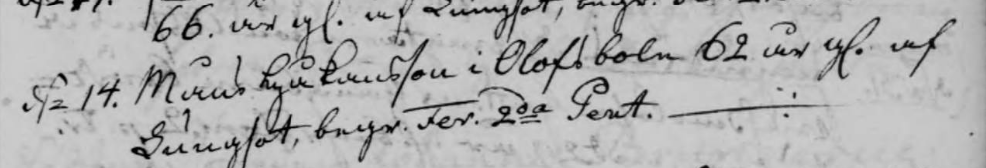 66. åhr gl. af Lungsot, begr.
d. 14. Måns Håkansson i Olofsboda 62 åhr gl. af
Lungsot, begr. Fer. 2da Pent.